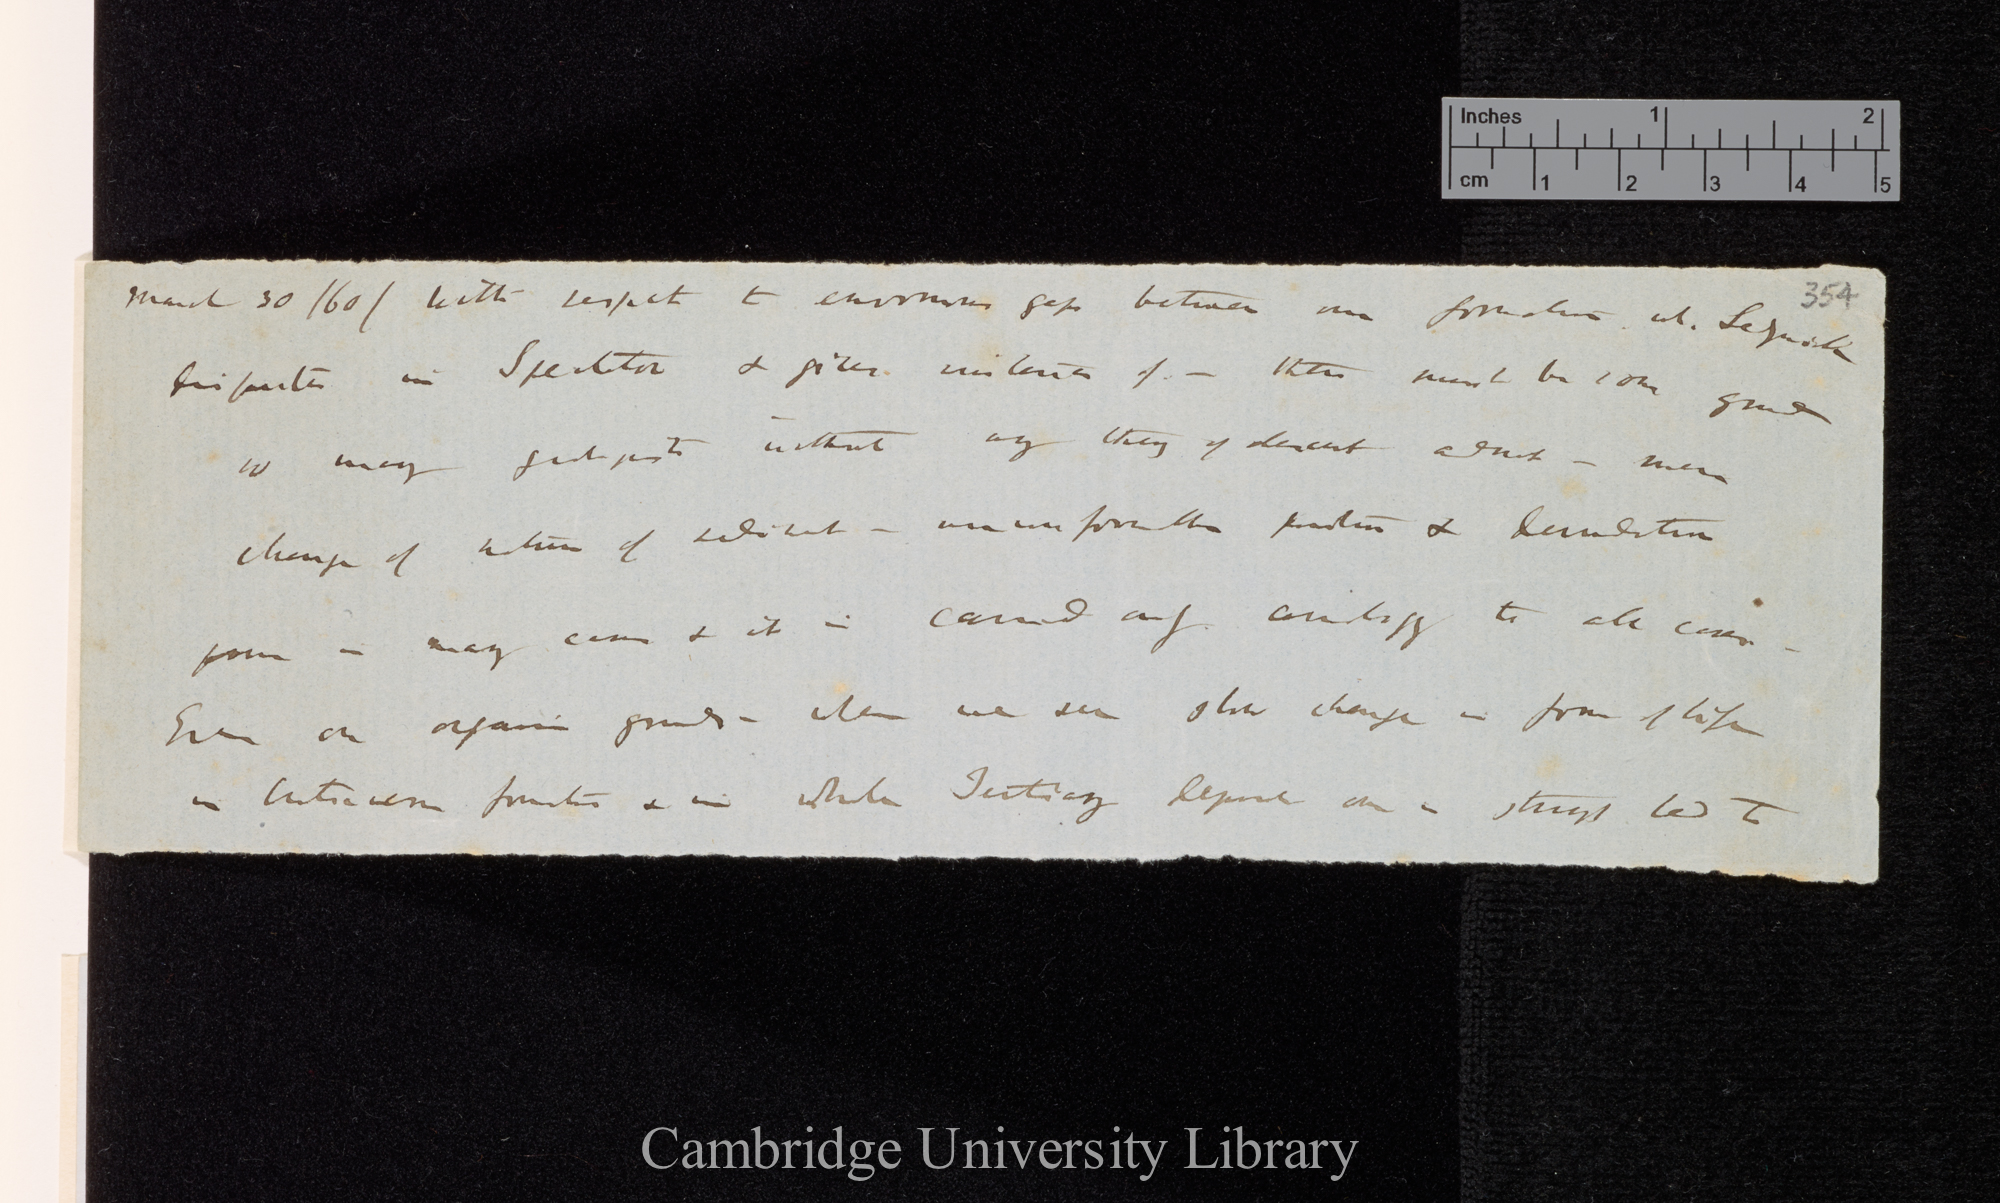 Inches 1 2
cm 1 2 3 4 5
354
March 30 /60/ With respect to enormous gaps between our formations wh. Sedgwick
disputes in Spectator & gives instances of. — there must be some grounds
so many geologists without any theory of descent admit — mere
change of nature of sediment — unconformable position & denudation
prove in many cases & it is carried only analogy to all cases —
Even on organic grounds — when we see slow change in form of life
in Cretaceous formation & in whole Tertiary deposit one is strongly led to
Cambridge University Library